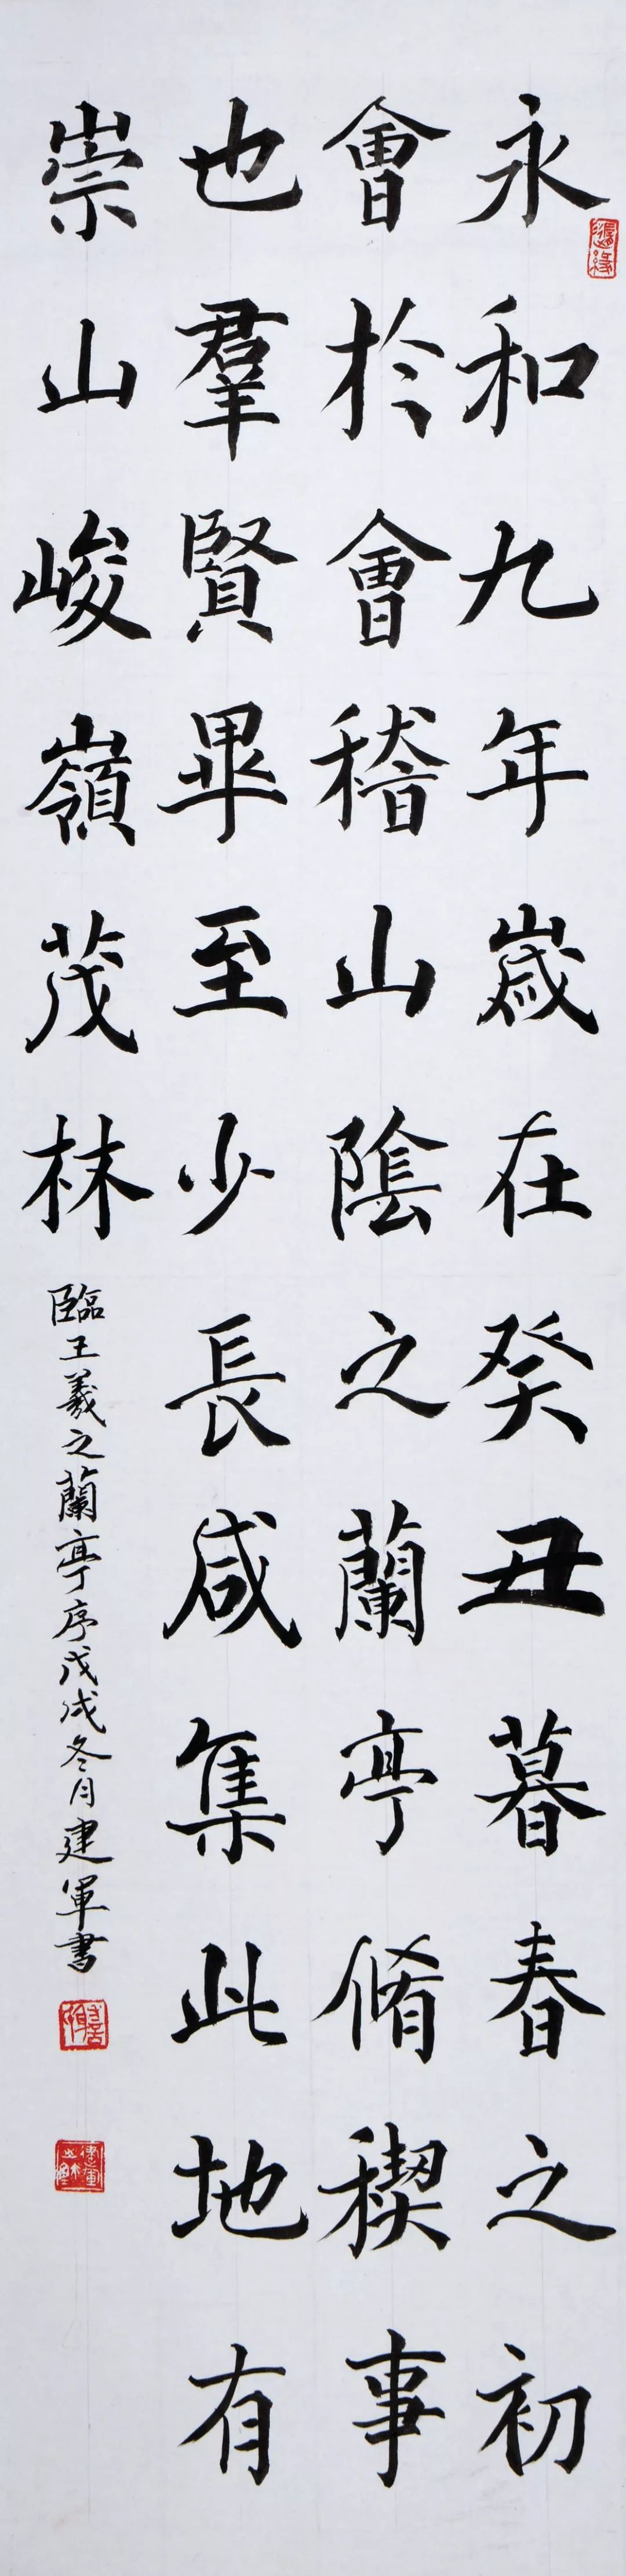 永和九年歲在癸丑暮春之初
會於會稽山陰之蘭亭脩稧事
也羣賢畢至少長咸集此地有
崇山峻嶺茂林
臨王羲之蘭亭序戊戌冬月建軍書
隨緣